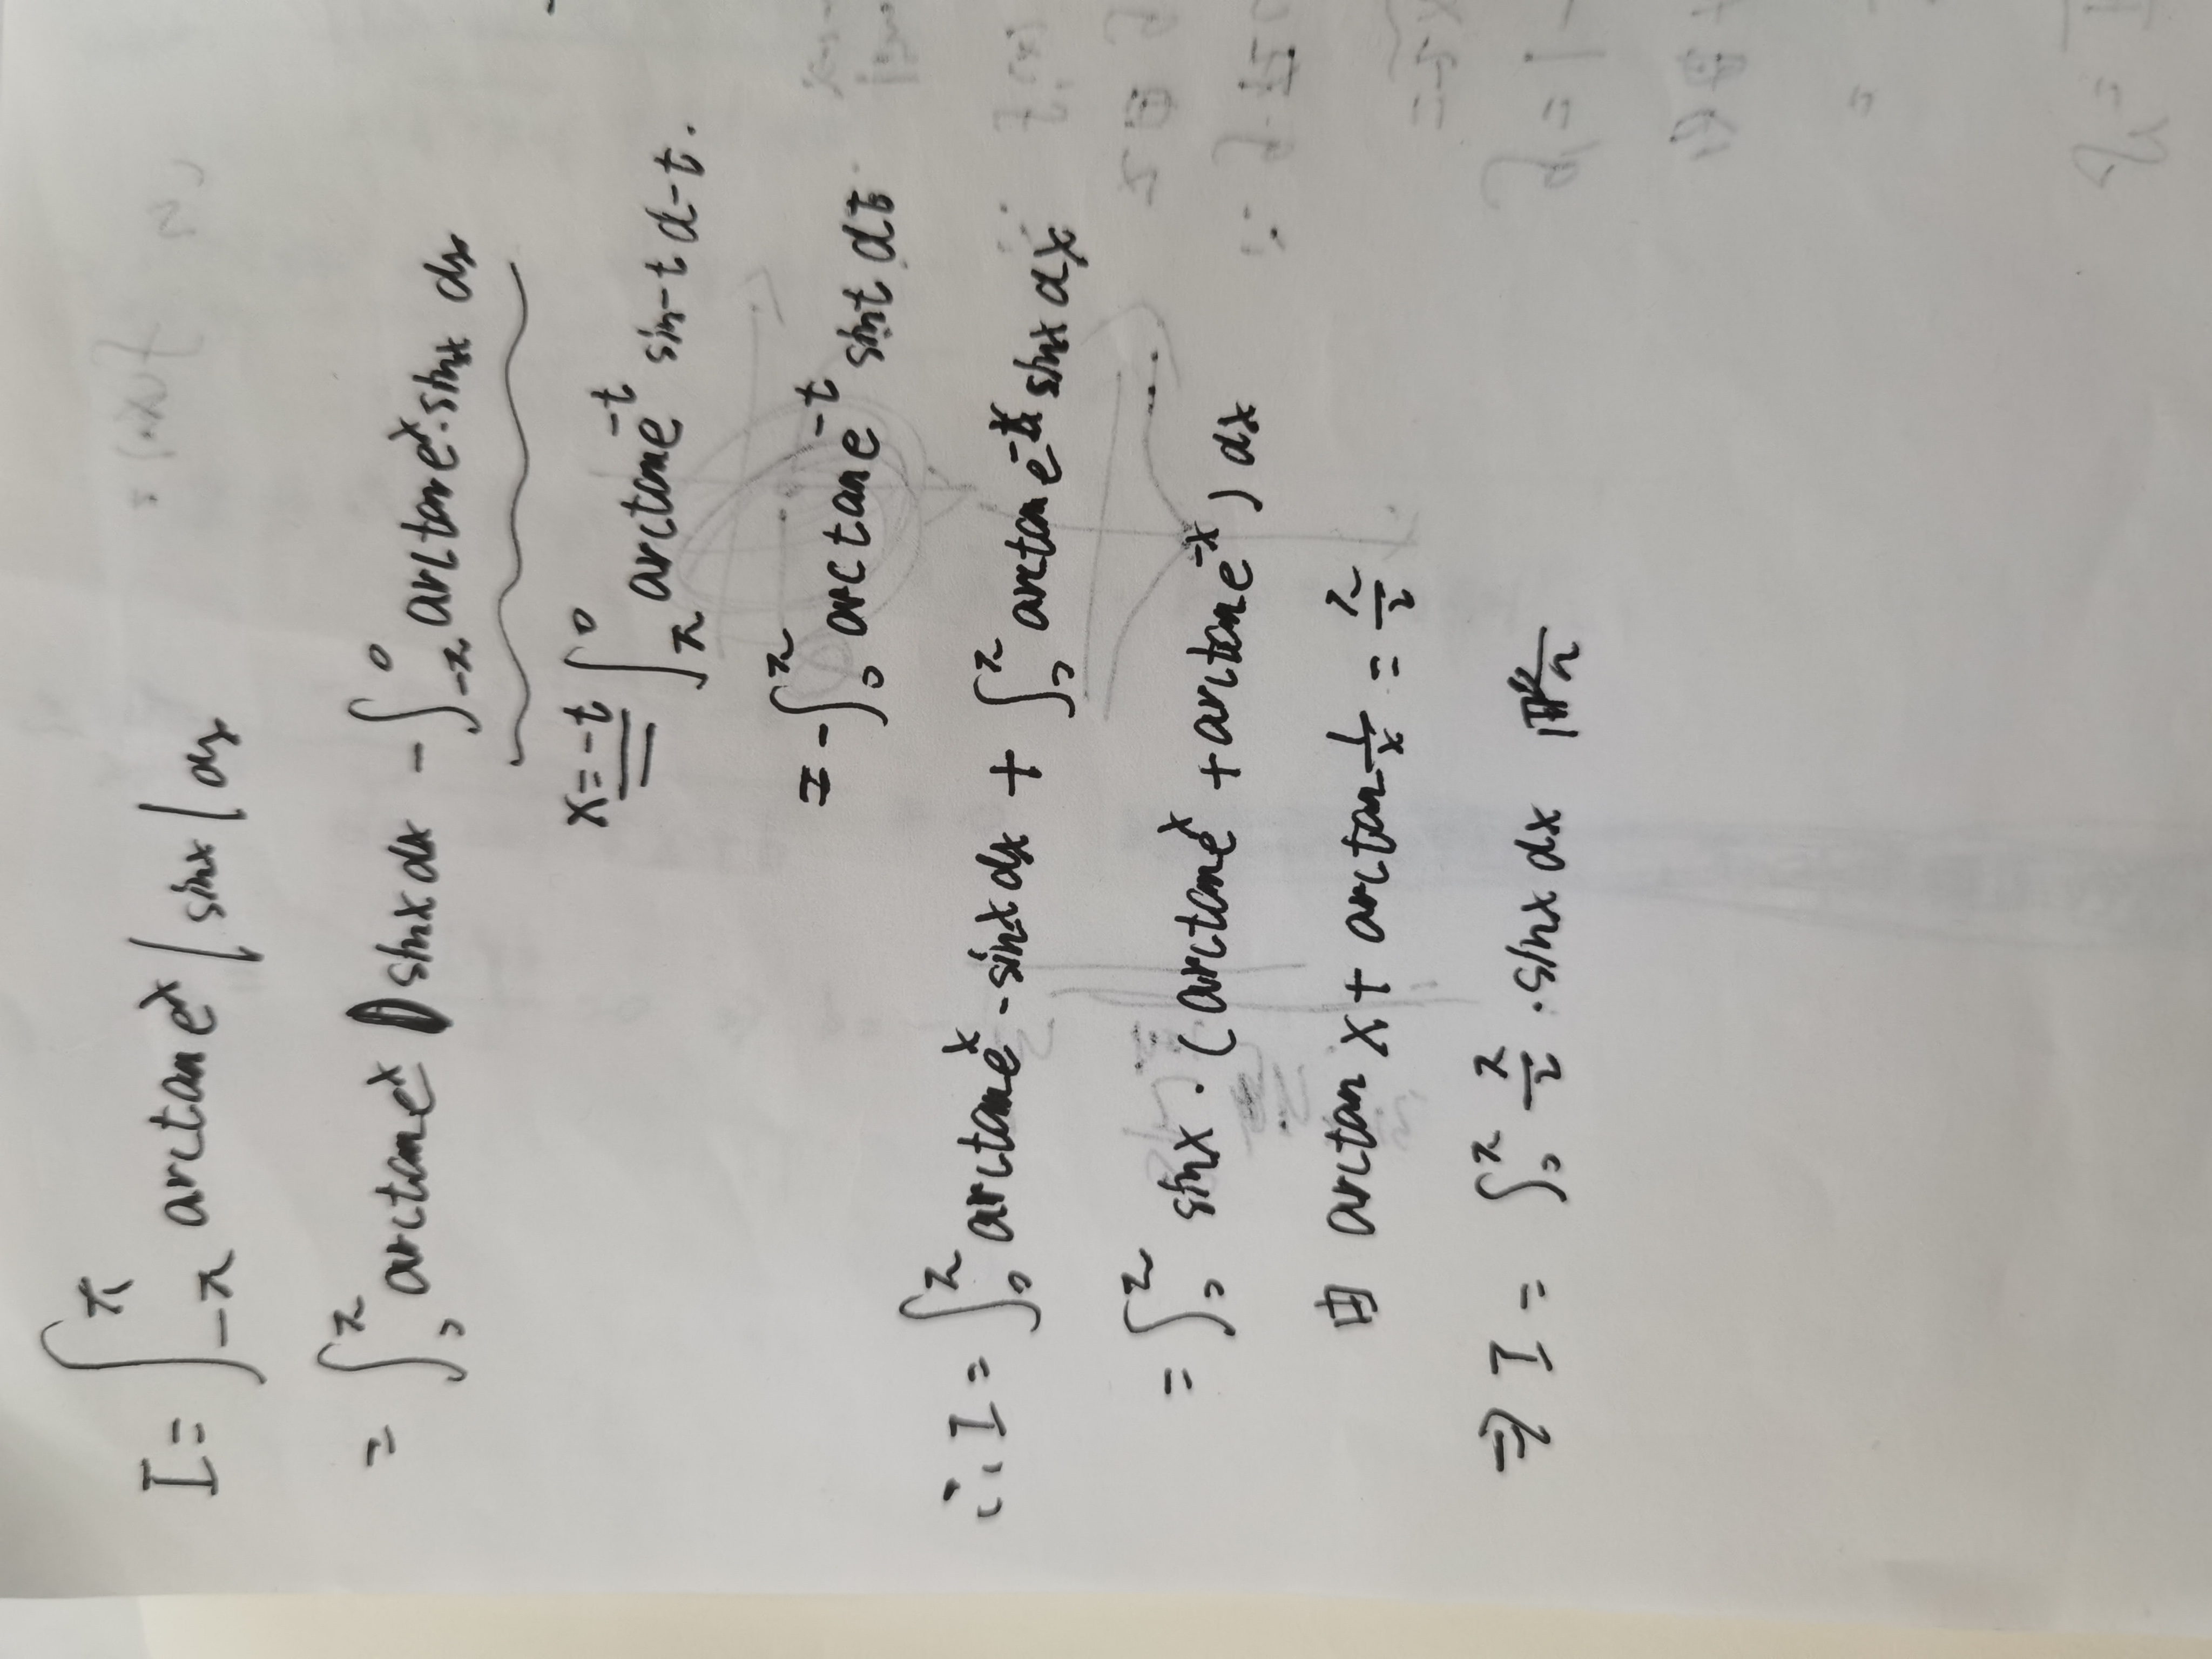 I = ∫_{-π}^{π} arctan e^x |sinx| dx
= ∫_0^π arctan e^x sinx dx - ∫_{-π}^0 arctan e^x · sinx dx
x = -t ∫_π^0 arctan e^{-t} sin-t d-t.
= - ∫_0^π arctan e^{-t} sint dt
∴ I = ∫_0^π arctan e^x · sinx dx + ∫_0^π arctan e^{-x} sinx dx
= ∫_0^π sinx · (arctan e^x + arctan e^{-x}) dx
由 arctan x + arctan 1/x = π/2
⇒ I = ∫_0^π π/2 · sinx dx